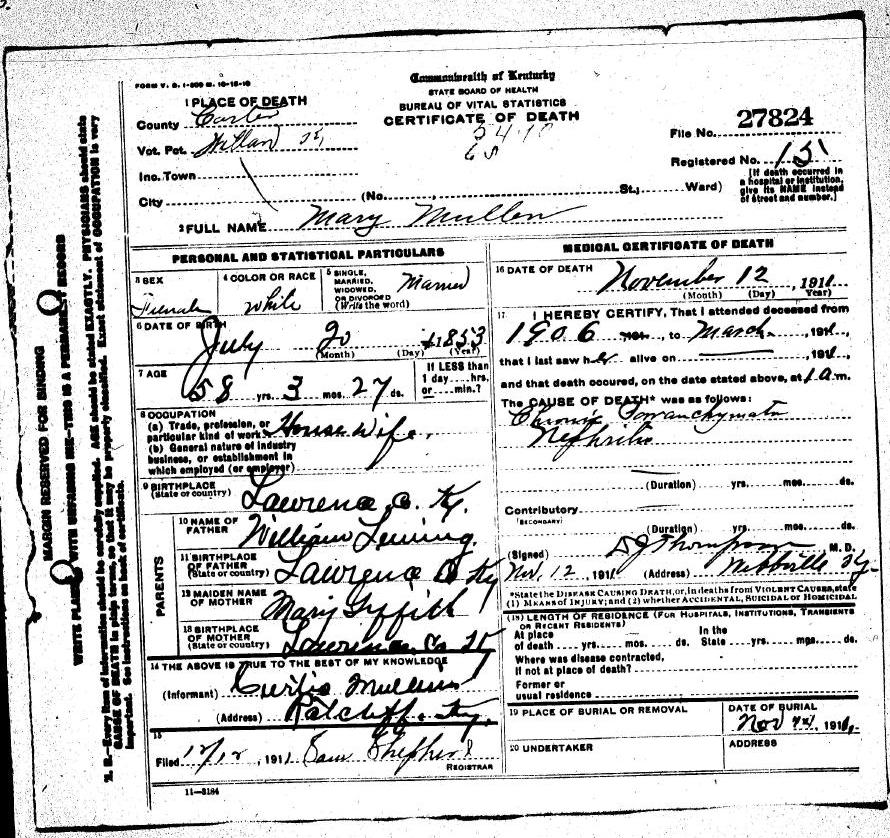 FORM V. S. 1-
Commonwealth of Kentucky
STATE BOARD OF HEALTH
BUREAU OF VITAL STATISTICS
CERTIFICATE OF DEATH
1 PLACE OF DEATH
County Carter
Vot. Pct. Willard
Inc. Town
City
(No. St.; Ward)
File No. 27824
Registered No. 151
[If death occurred in
a hospital or institution,
give its NAME instead
of street and number.]
2 FULL NAME Mary Mullen
PERSONAL AND STATISTICAL PARTICULARS
3 SEX
Female
4 COLOR OR RACE
White
5 SINGLE,
MARRIED,
WIDOWED,
OR DIVORCED
(Write the word)
Married
6 DATE OF BIRTH
July 20 1853
(Month) (Day) (Year)
7 AGE
58 yrs. 3 mos. 27 ds.
If LESS than
1 day....hrs.
or....min.?
8 OCCUPATION
(a) Trade, profession, or
particular kind of work House wife.
(b) General nature of industry
business, or establishment in
which employed (or employer)
9 BIRTHPLACE
(State or country)
Lawrence Co. Ky.
PARENTS
10 NAME OF
FATHER
William
11 BIRTHPLACE
OF FATHER
(State or country)
Lawrence Co Ky
12 MAIDEN NAME
OF MOTHER
Mary
13 BIRTHPLACE
OF MOTHER
(State or country)
Lawrence Co Ky
14 THE ABOVE IS TRUE TO THE BEST OF MY KNOWLEDGE
(Informant) Curtis Mullins
(Address) Ratcliff. Ky.
15
Filed 12/12, 1911 Sam Shepherd
REGISTRAR
11-3184
MEDICAL CERTIFICATE OF DEATH
16 DATE OF DEATH
November 12, 1911
(Month) (Day) (Year)
17 I HEREBY CERTIFY, That I attended deceased from
1906 191 , to March 191 ,
that I last saw her alive on , 191 ,
and that death occured, on the date stated above, at 1 a m.
The CAUSE OF DEATH* was as follows:
Chronic
Nephritis
(Duration) yrs. mos. ds.
Contributory
(SECONDARY)
(Duration) yrs. mos. ds.
(Signed) Thompson M. D.
Nov. 12, 1911 (Address) Webbville Ky.
*State the DISEASE CAUSING DEATH, or, in deaths from VIOLENT CAUSES, state
(1) MEANS OF INJURY; and (2) whether ACCIDENTAL, SUICIDAL or HOMICIDAL
(18) LENGTH OF RESIDENCE (FOR HOSPITALS, INSTITUTIONS, TRANSIENTS
OR RECENT RESIDENTS)
At place
of death yrs. mos. ds.
In the
State yrs. mos. ds.
Where was disease contracted,
If not at place of death?
Former or
usual residence
19 PLACE OF BURIAL OR REMOVAL
DATE OF BURIAL
Nov 1911
20 UNDERTAKER
ADDRESS
MARGIN RESERVED FOR BINDING
WRITE PLAINLY WITH UNFADING INK—THIS IS A PERMANENT RECORD
N. B.—Every item of information should be carefully supplied. AGE should be stated EXACTLY. PHYSICIANS should state
CAUSE OF DEATH in plain terms, so that it may be properly classified. Exact statement of OCCUPATION is very
important. See instructions on back of certificate.